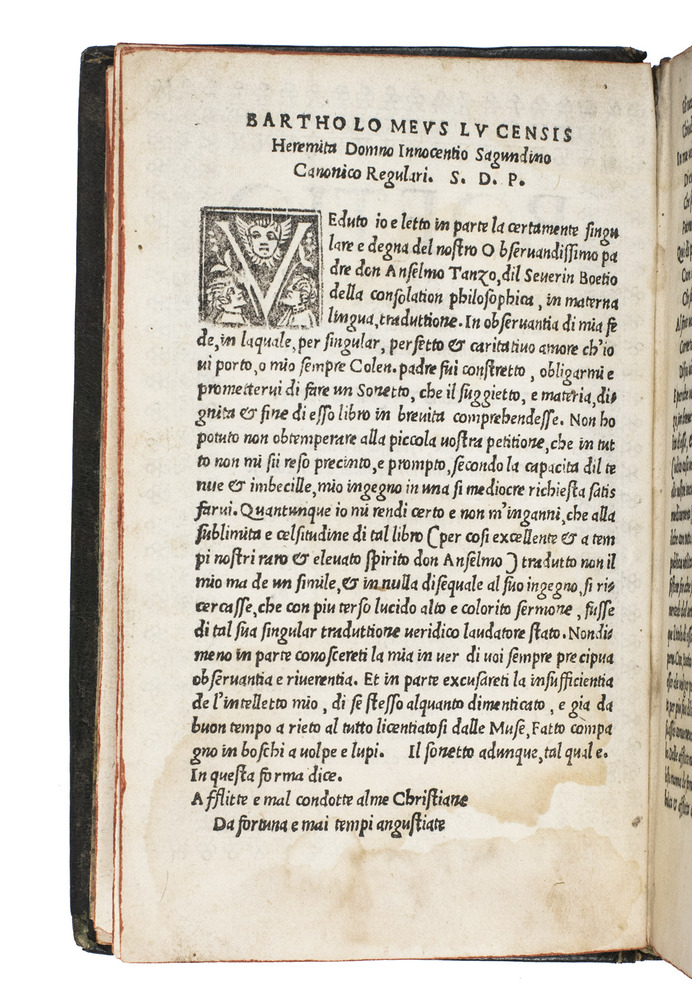 BARTHOLOMEVS LVCENSIS
Heremita Domno Innocentio Sagundino
Canonico Regulari. S. D. P.
VEduto io e letto in parte la certamente singu
lare e degna del nostro Observandissimo pa
dre don Anselmo Tanzo, dil Severin Boetio
della consolation philosophica, in materna
lingua, traduttione. In observantia di mia fe
de, in laquale, per singular, perfetto & caritativo amore ch'io
vi porto, o mio sempre Colen. padre fui constretto, obligarmi e
promettervi di fare un Sonetto, che il suggietto, e materia, di⸗
gnita & fine di esso libro in brevita comprehendesse. Non ho
potuto non obtemperare alla piccola vostra petitione, che in tut
to non mi sii reso precinto, e prompto, secondo la capacita dil te
nue & imbecille, mio ingegno in una si mediocre richiesta satis
farvi. Quantunque io mi rendi certo e non m'inganni, che alla
sublimita e celsitudine di tal libro (per cosi excellente & a tem
pi nostri raro & elevato spirito don Anselmo) tradutto non il
mio ma de un simile, & in nulla disequale al suo ingegno, si ri⸗
cercasse, che con piu terso lucido alto e colorito sermone, fusse
di tal sua singular traduttione veridico laudatore stato. Nondi⸗
meno in parte conoscereti la mia in ver di voi sempre precipua
observantia e riverentia. Et in parte excusareti la insufficientia
de l'intelletto mio, di se stesso alquanto dimenticato, e gia da
buon tempo a rieto al tutto licentiatosi dalle Muse, Fatto còpa
gno in boschi a volpe e lupi. Il sonetto adunque, tal qual e.
In questa forma dice.
Afflitte e mal condotte alme Christiane
Da fortuna e mai tempi angustiate